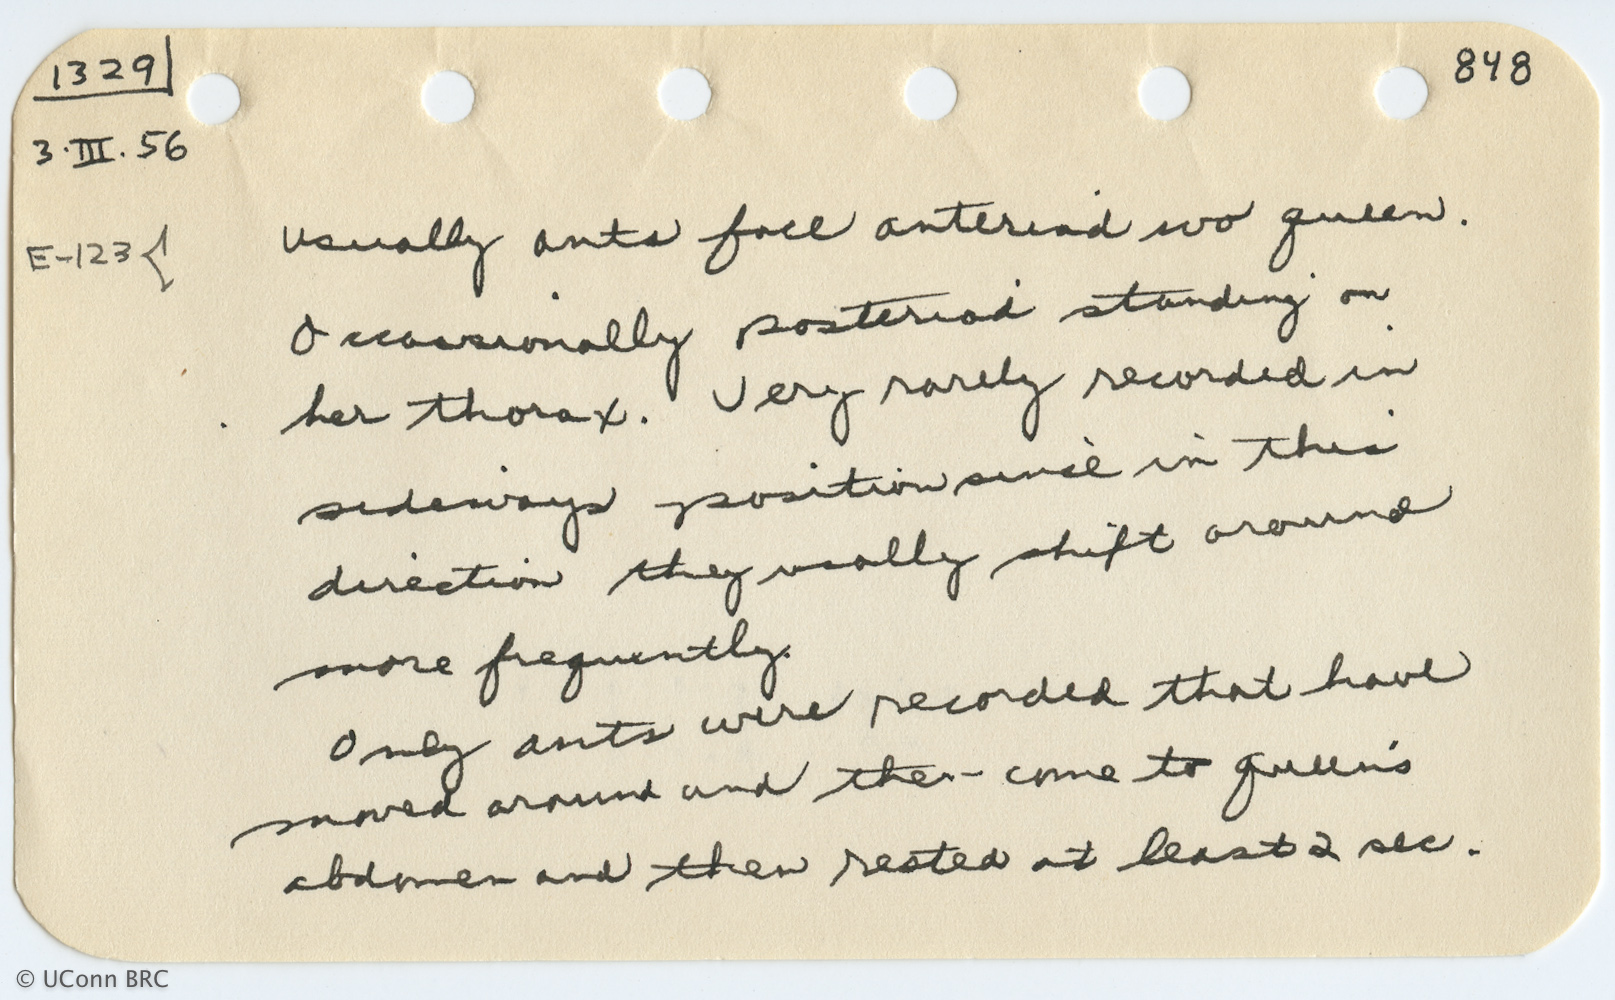 1329
848
3·III·56
E-123{
Usually ants face anteriad wo queen.
Occassionally posteriad standing on
her thorax. Very rarely recorded in
sideways position since in this
direction they usally shift around
more frequently.
Only ants were recorded that have
moved around and then come to queen's
abdomen and then rested at least 2 sec.
© UConn BRC